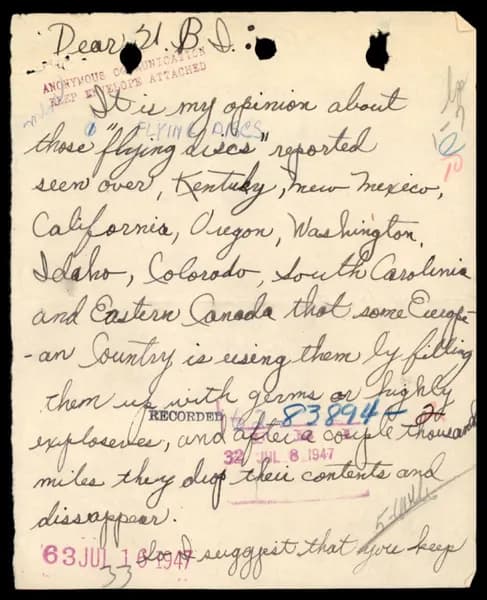 Dear F. B. I.
ANONYMOUS COMMUNICATION
KEEP ENVELOPE ATTACHED
It is my opinion about
FLYING DISCS
those "flying discs" reported
seen over, Kentuky, new mexico,
California, Oregon, Washington,
Idaho, Colorado, South Carolinia
and Eastern Canada that some Europe-
-an Country is using them by filling
them up with germs or highly
RECORDED
83894-
explosives, and after a couple thousand
32 JUL 8 1947
miles they drop their contents and
dissappear.
63 JUL 16 1947
33
So I suggest that you keep